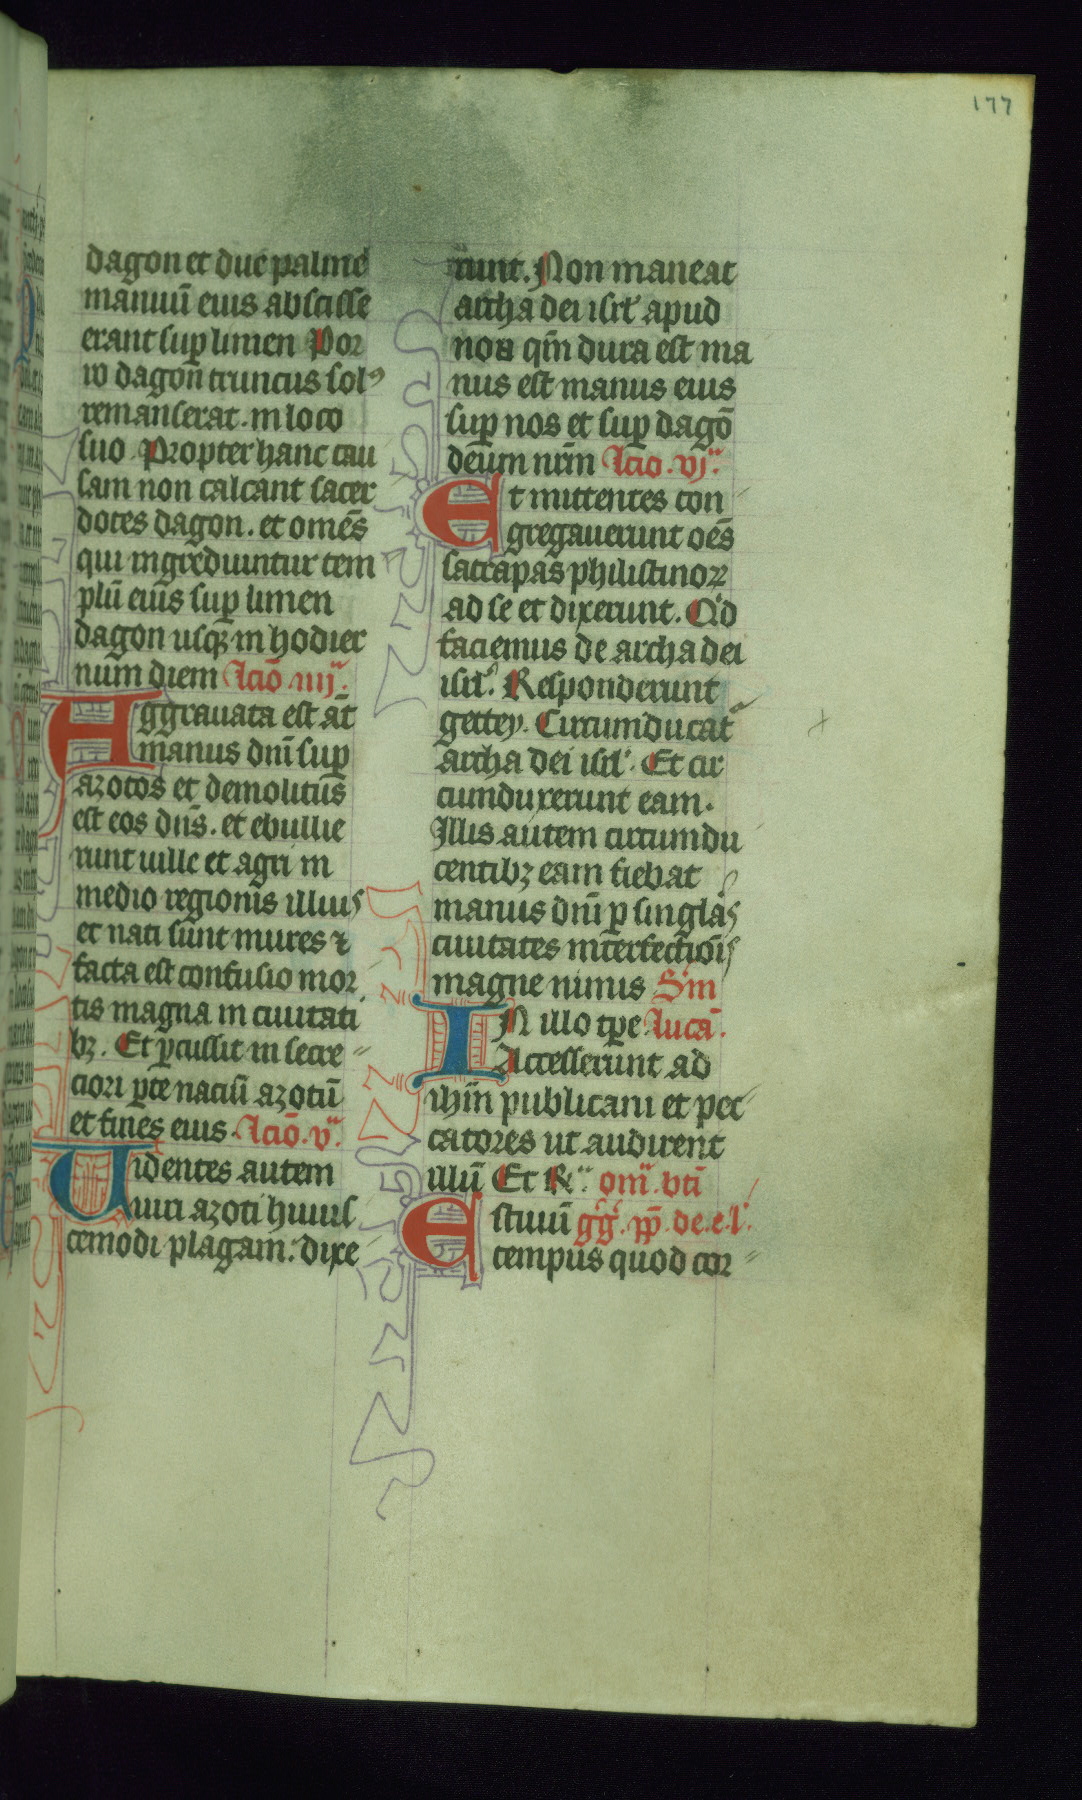 177
dagon et due palme
manuū eius abscisse
erant sup limen Por
ro dagon truncus sol9
remanserat. in loco
suo. Propter hanc cau
sam non calcant sacer
dotes dagon. et omēs
qui ingrediuntur tem
plū eius sup limen
dagon usqz in hodier
num diem Lcio iiij.
Aggrauata est āt
manus dnī sup
azotos et demolitus
est eos dn̄s. et ebullie
runt uille et agri in
medio regionis illius
et nati sunt mures ⁊
facta est confusio mor
tis magna in ciuitati
bz. Et pcussit in secre
ciori pte naciū azotū
et fines eius. Lcio. v.
Uidentes autem
uiri azoti huius
cemodi plagam. dixe
runt. Non maneat
archa dei isrl apud
nos qm̄ dura est ma
nus est manus eius
sup nos et sup dagō
deum nr̄m Lcio. vj.
Et mittentes con
gregauerunt oēs
satrapas philistinorz
ad se et dixerunt. Qid
faciemus de archa dei
isrl. Responderunt
gettey. Circumducat
archa dei isrl. Et cir
cumduxerunt eam.
Illis autem circumdu
centibz eam fiebat
manus dnī p singlas
ciuitates interfectiois
magne nimis Sm
IN illo tpe. lucā.
Accesserunt ad
ihm̄ publicani et pec
catores ut audirent
illū Et R. om. bti
Estiuū gg. pp. de. e. l.
tempus quod cor